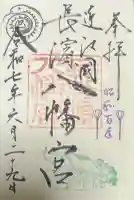 奉拝
昭和百年
近江國
長濱八幡宮
令和七年六月二十九日